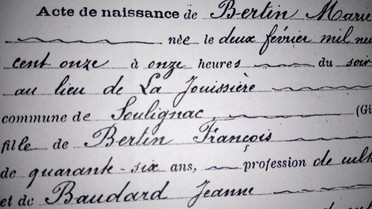 Acte de naissance de Bertin Marie
née le deux février mil neu
cent onze à onze heures du soir
au lieu de La Jouissière
commune de Soulignac (Gi
fille de Bertin François
de quarante-six ans, profession de cult
et de Baudard Jeanne